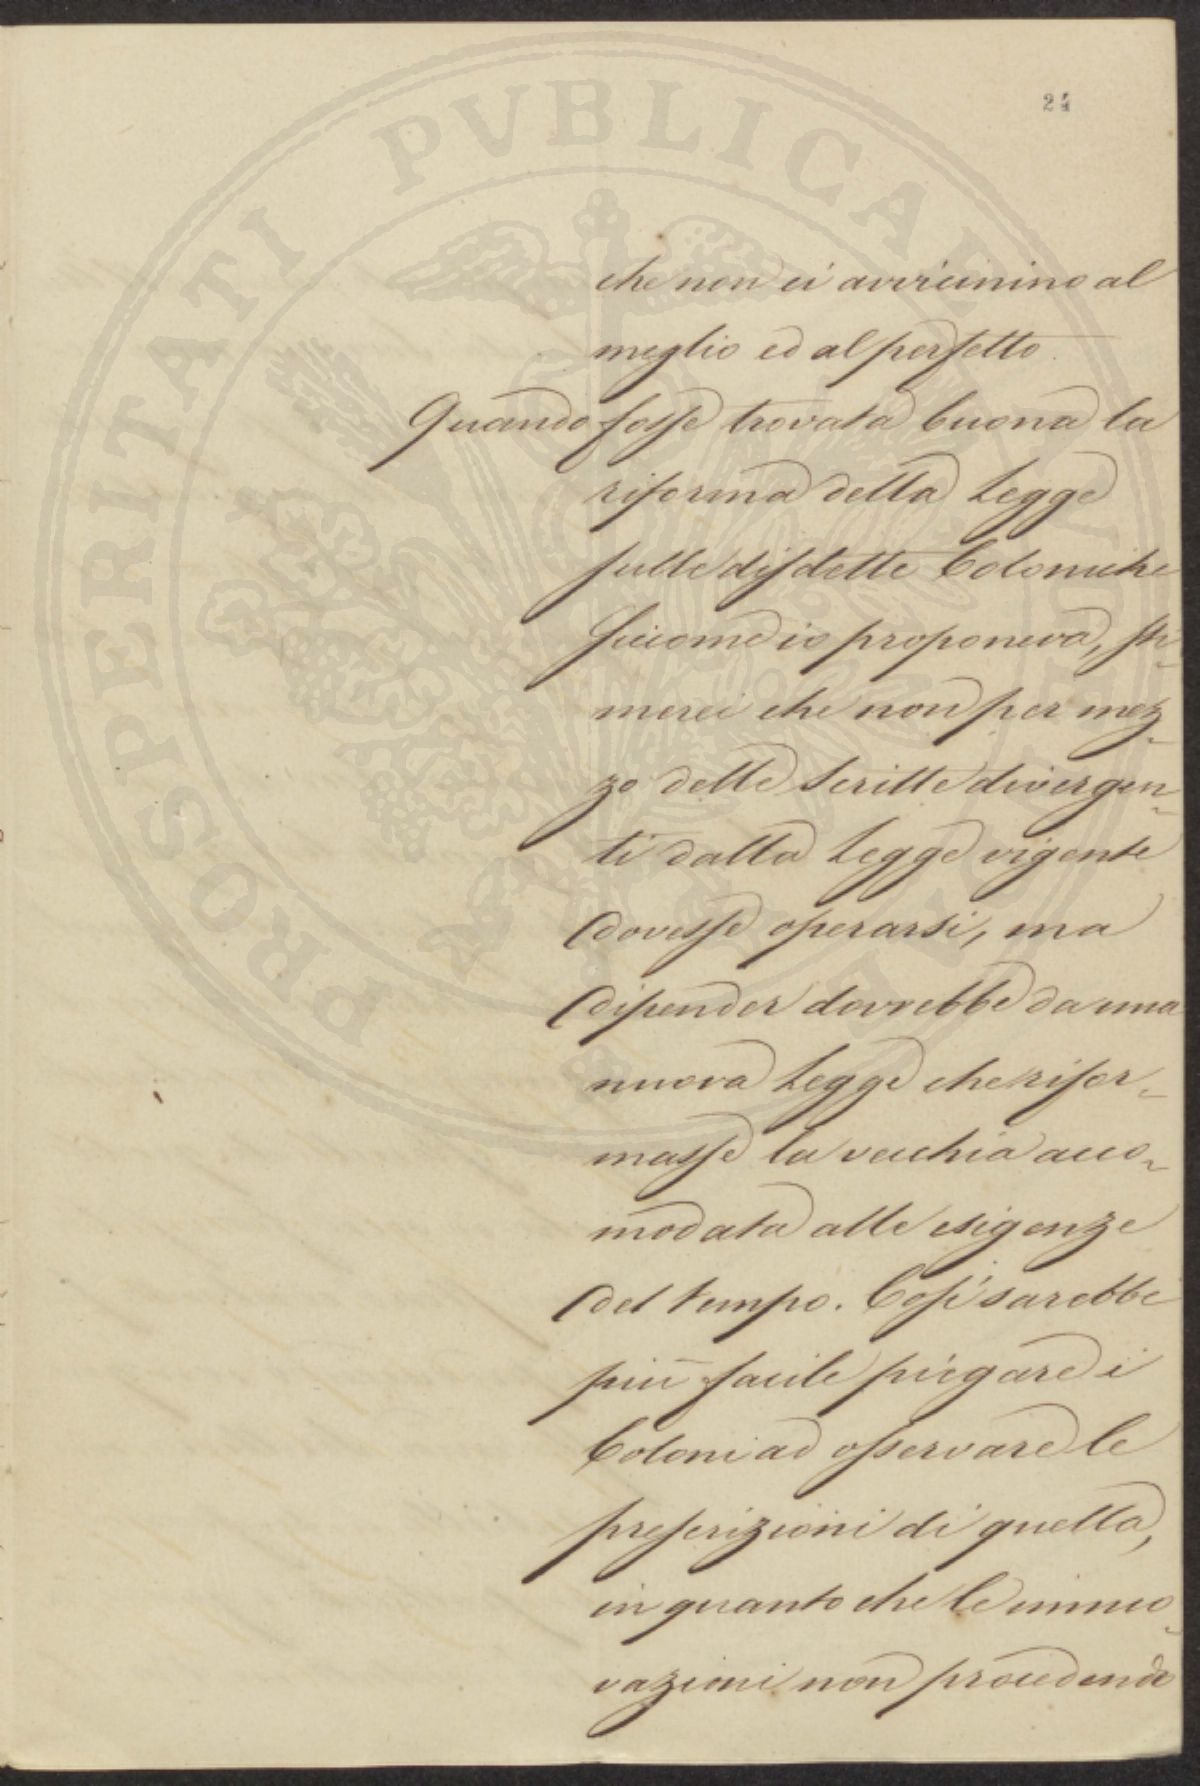 24
PROSPERITATI PVBLICAE
che non ci avvicinino al
meglio ed al perfetto.
Quando fosse trovata buona la
riforma della Legge
sulle disdette Coloniche
siccome io proponeva, sti-
merei che non per mez-
zo delle Scritte divergen-
ti dalla Legge vigente
dovesse operarsi, ma
dipender dovrebbe da una
nuova Legge che rifor-
masse la vecchia acco-
modata alle esigenze
del tempo. Così sarebbe
più facile piegare i
Coloni ad osservare le
prescrizioni di quella,
in quanto che le inno-
vazioni non procedendo